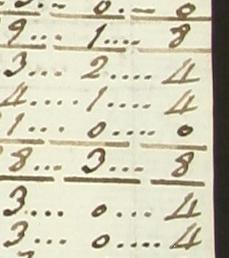 0.— 0
9... 1.... 8
3... 2.... 4
4.... 1.... 4
1... 0.... 0
8... 3... 8
3.... 0.... 4
3... 0.... 4